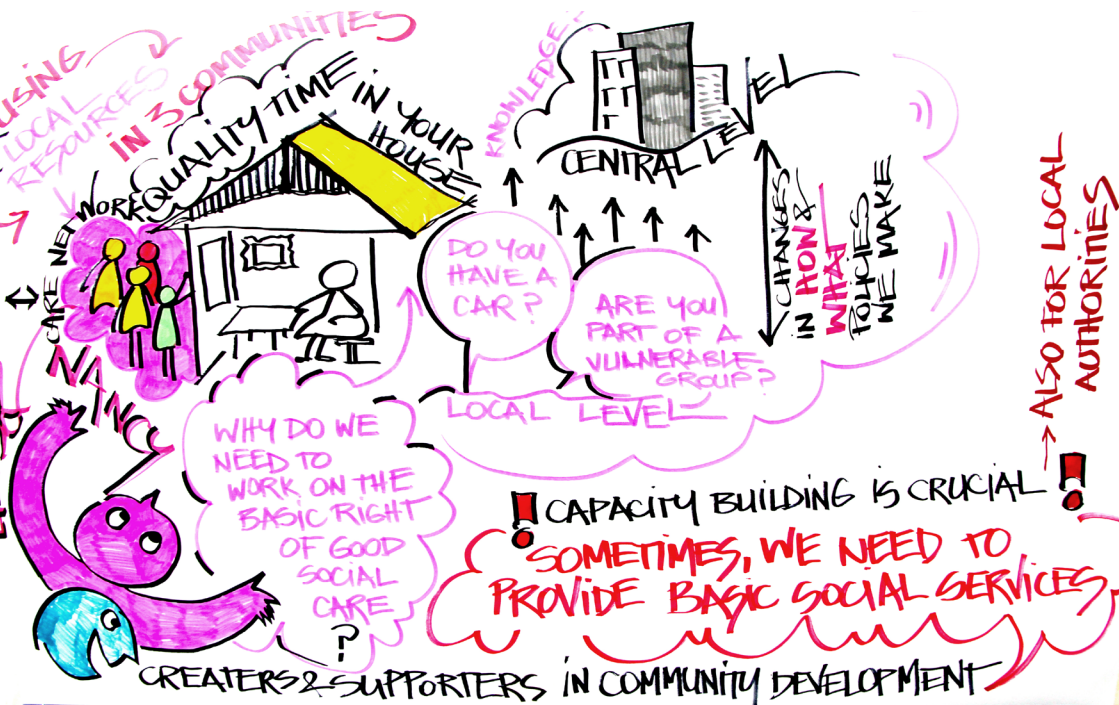 USING
LOCAL
RESOURCES
IN 3 COMMUNITIES
QUALITY TIME IN YOUR
HOUSE
CARE NETWORK
KNOWLEDGE
CENTRAL LEVEL
IN CHANGES
HOW &
WHAT
POLICIES
WE MAKE
DO YOU
HAVE A
CAR?
ARE YOU
PART OF A
VULNERABLE
GROUP?
LOCAL LEVEL
NANCY
WHY DO WE
NEED TO
WORK ON THE
BASIC RIGHT
OF GOOD
SOCIAL
CARE
?
→ ALSO FOR LOCAL
AUTHORITIES
! CAPACITY BUILDING IS CRUCIAL !
SOMETIMES, WE NEED TO
PROVIDE BASIC SOCIAL SERVICES
CREATERS & SUPPORTERS IN COMMUNITY DEVELOPMENT